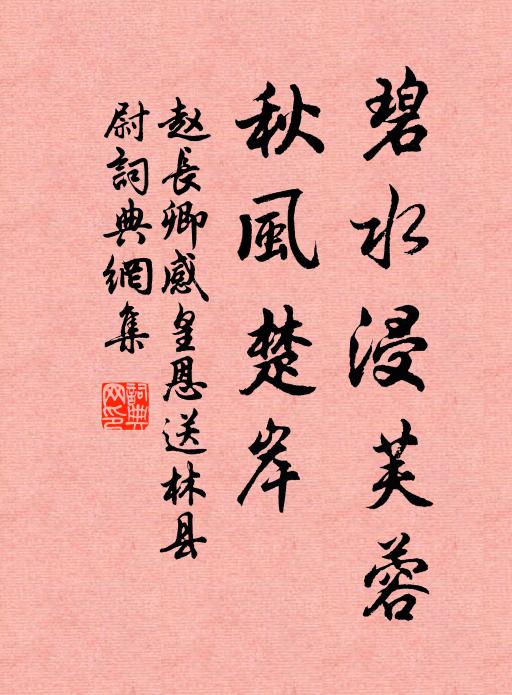 碧水浸芙蓉
秋風楚岸
赵長卿感皇恩送林县
尉詞典網集
詞典网印